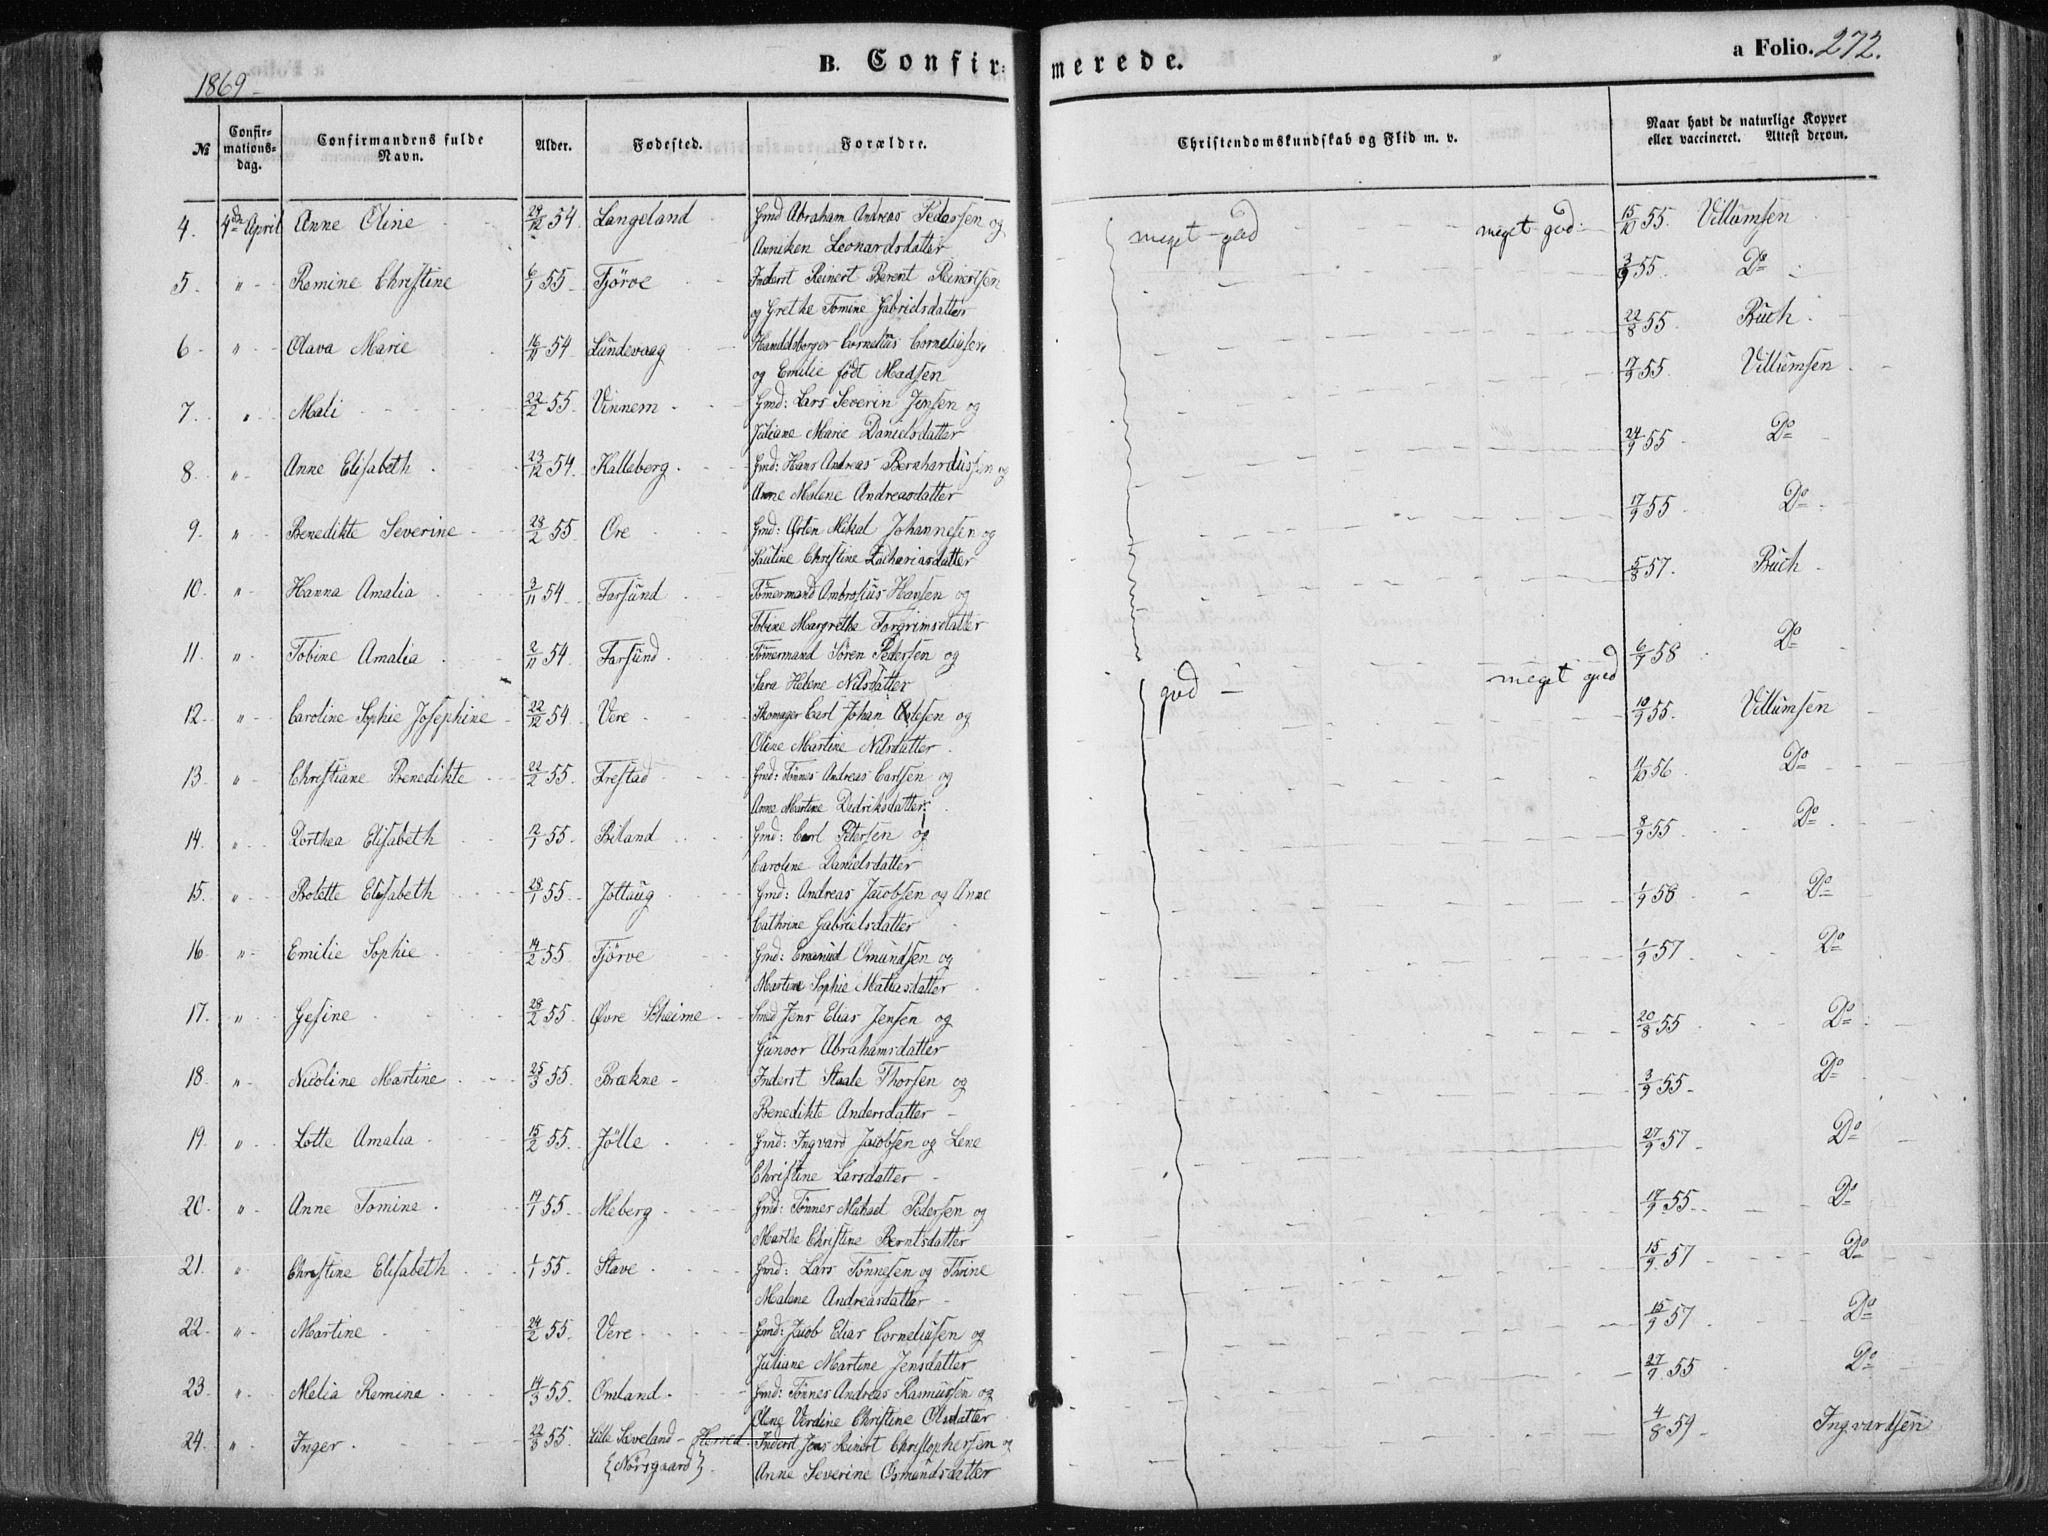 1869
B. Confir-
merede.
a Folio. 272.
№ Confir-mations-dag. Confirmandens fulde Navn. Alder. Fødested. Forældre.
Christendomskundskab og Flid m. v.
Naar havt de naturlige Kopper eller vaccineret. Attest derom.
4. 4de April Anne Oline 29/12 54 Langeland Gmd Abraham Andreas Pedersen og meget god meget god: 15/10 55. Villumsen
Anniken Leonardsdatter
5. " Remine Christine 6/1 55 Fjörve Inderst Reinert Berent Reinertsen 3/9 55. Do
og Grethe Tomine Gabrielsdatter
6 " Olava Marie 16/11 54 Lundevaag Handelsborger Cornelius Corneliusen 22/8 55 Buch
og Emilie født Madsen
7. " Mali 22/2 55 Vinnem Gmd: Lars Severin Jensen og 17/9 55. Villumsen
Juliane Marie Danielsdatter
8. " Anne Elisabeth 23/12 54. Kalleberg Gmd: Hans Andreas Bernhardussen og 24/9 55 Do
Anne Malene Andreasdatter
9. " Benedikte Severine 28/2 55 Ore Gmd: Østen Mikal Johannesen og 17/9 55 Do
Pauline Christine Zachariasdatter
10. " Hanna Amalia 3/11 54 Farsund Tømermand Ambrosius Hansen og 5/8 57. Buch
Tobine Margrethe Torgrimsdatter
11. " Tobine Amalia 2/11 54 Farsund Tømermand Sören Pedersen og meget god 6/9 58 Do
Sara Helene Nilsdatter
12. " Caroline Sophie Josephine 22/12 54 Vere Skomager Carl Johan Olesen og god 10/9 55. Villumsen
Oline Martine Nilsdatter
13. " Christiane Benedikte 22/2 55 Frestad Gmd: Tönnes Andreas Carlsen og 11/10 56 Do
Anne Martine Didriksdatter
14. " Dorthea Elisabeth 12/1 55. Biland Gmd: Carl Petersen og 8/9 55 Do
Caroline Danielsdatter
15. " Bolette Elisabeth 28/1 55 Jöttaug Gmd: Andreas Jacobsen og Anne 1/9 58 Do
Cathrine Gabrielsdatter
16 " Emilie Sophie 14/2 55 Fjörve Gmd: Emanuel Omundsen og 1/9 57 Do
Martine Sophie Mathiasdatter
17. " Gesine 28/2 55 Øvre Skeime Smed Jens Elias Jensen og 20/8 55 Do
Gunvor Abrahamsdatter
18 " Nicoline Martine 25/3 55. Brækne Inderst Staale Thorsen og 3/9 55 Do
Benedikte Andersdatter
19. " Lotte Amalia 15/2 55. Jölle Gmd: Ingvard Jacobsen og Lene 27/9 57 Do
Christine Larsdatter
20 " Anne Tomine 19/1 55 Meberg Gmd: Tönnes Mikael Pedersen og 17/9 55 Do
Marthe Christine Berntsdatter
21. " Christine Elisabeth 1/1 55. Stave Gmd: Lars Tönnesen og Thrine 15/9 57 Do
Malene Andreasdatter
22. " Martine 24/2 55. Vere Gmd: Jacob Elias Corneliusen og 15/9 57 Do
Juliane Martine Jensdatter
23. " Melia Remine 14/3 55. Omland Gmd: Tönnes Andreas Rasmussen og 27/9 55 Do
Oline Verdine Christine Olsdatter
24. " Inger 22/3 55 Lille Sæveland - Herred Inderst Jens Reinert Christophersen og 4/8 59 Ingvardsen
{Norsgaard} Anne Severine Osmundsdatter